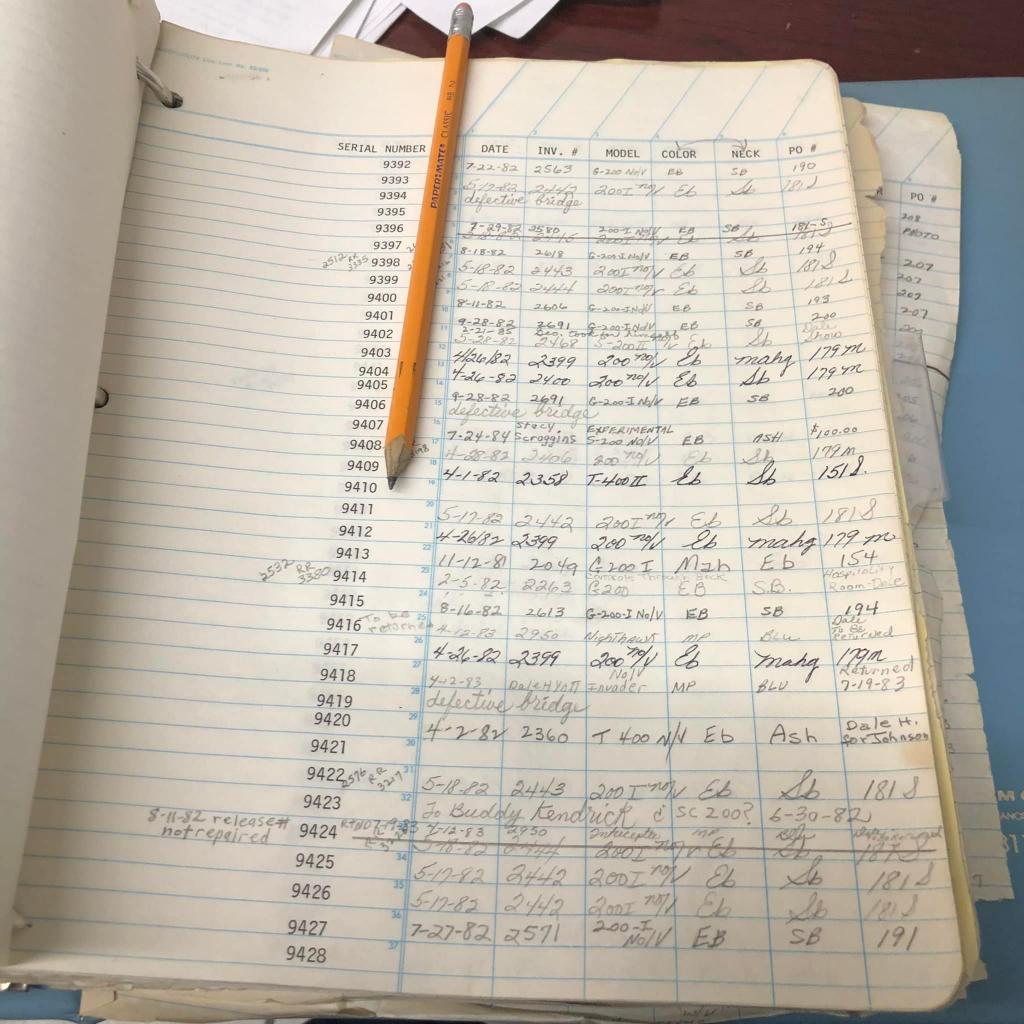 SERIAL NUMBER DATE INV. # MODEL COLOR NECK PO #
9392 7-22-82 2563 G-200 No/V EB SB 190
9393 5-17-82 2442 200I no/v Eb Sb 181S
9394 defective bridge
9395
9396 7-29-82 2580 200-I No/V EB SB 181-S
9397 8-18-82 2618 G-200-I No/V EB SB 194
2512 RR 3335 9398 5-18-82 2443 200I no/v Eb Sb 181S
9399 5-18-82 2444 200I no/v Eb Sb 181S
9400 8-11-82 2606 G-200-I No/V EB SB 193
9401 9-28-82 2691 G-200-I No/V EB SB 200
9402 5-28-82 2468 S-200II Eb Sb Dale Show
9403 4/26/82 2399 200 no/v Eb mahg 179m
9404 4-26-82 2400 200 no/v Eb Sb 179m
9405 9-28-82 2691 G-200-I No/V EB SB 200
9406 defective bridge
9407 7-24-84 Stacy Scroggins EXPERIMENTAL S-200 No/V EB ASH $100.00
9408 4-28-82 2406 200 no/v Eb Sb 179m
9409 4-1-82 2358 T-400II Eb Sb 151S.
9410
9411 5-17-82 2442 200I no/v Eb Sb 181S
9412 4-26/82 2399 200 no/v Eb mahg 179m
9413 11-12-81 2049 G200I Mah Eb 154
2532 RR 3380 9414 2-5-82 2263 G200 Controls Through Back EB S.B. Hospitality Room-Dale
9415 8-16-82 2613 G-200-I No/V EB SB 194
9416 To be returned 4-12-83 2950 Nighthawk MP Blu Dale To Be Returned
9417 4-26-82 2399 200 no/v Eb mahg 179m
9418 4-12-83 Dale Hyatt Invader No/V MP BLU Returned 7-19-83
9419 defective bridge
9420 4-2-82 2360 T 400 N/V Eb Ash Dale H. for Johnson
9421
9422 2576 RR 3217 5-18-82 2443 200I no/v Eb Sb 181S
9423 To Buddy Kendrick SC 200? 6-30-82
8-11-82 release # not repaired 9424 4-12-83 2950 Interceptor MP Blu
5-18-82 2444 200I no/v Eb Sb 181S
9425 5-17-82 2442 200I no/v Eb Sb 181S
9426 5-17-82 2442 200I no/v Eb Sb 181S
9427 7-27-82 2571 200-I No/V EB SB 191
9428
PAPER:MATE CLASSIC HB 2
PO #
208
PHOTO
207
207
207
207